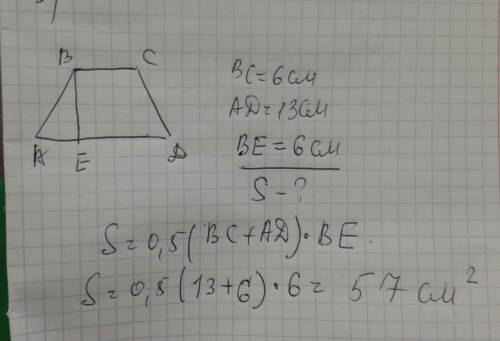 B C
A E D
BC=6см
AD=13см
BE=6см
S-?
S=0,5(BC+AD)·BE.
S=0,5(13+6)·6= 57 см²